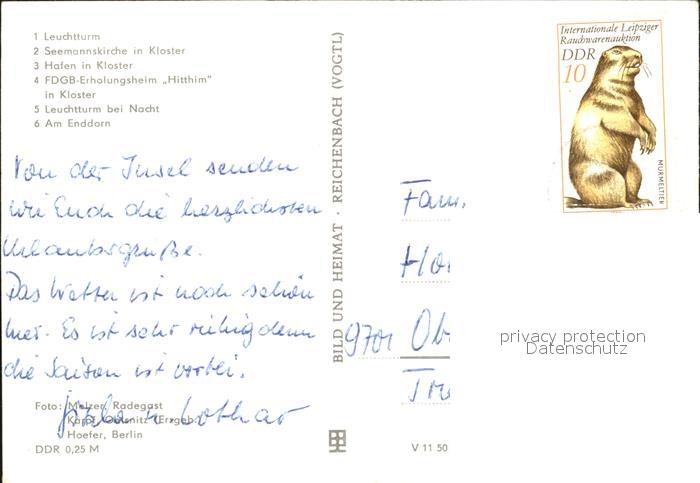 1 Leuchtturm
2 Seemannskirche in Kloster
3 Hafen in Kloster
4 FDGB-Erholungsheim „Hitthim"
in Kloster
5 Leuchtturm bei Nacht
6 Am Enddorn
Von der Insel senden
wir Euch die herzlichsten
Urlaubsgrüße.
Das Wetter ist noch schön
hier. Es ist sehr ruhig denn
die Saison ist vorbei.
u. Lothar
Foto: Melzer, Radegast
Oelsnitz (Erzgeb.)
Hoefer, Berlin
DDR 0,25 M
BILD UND HEIMAT · REICHENBACH (VOGTL)
V 11 50
Internationale Leipziger
Rauchwarenauktion
DDR
10
MURMELTIER
Fam.
Ho
9701 Ob
privacy protection
Datenschutz